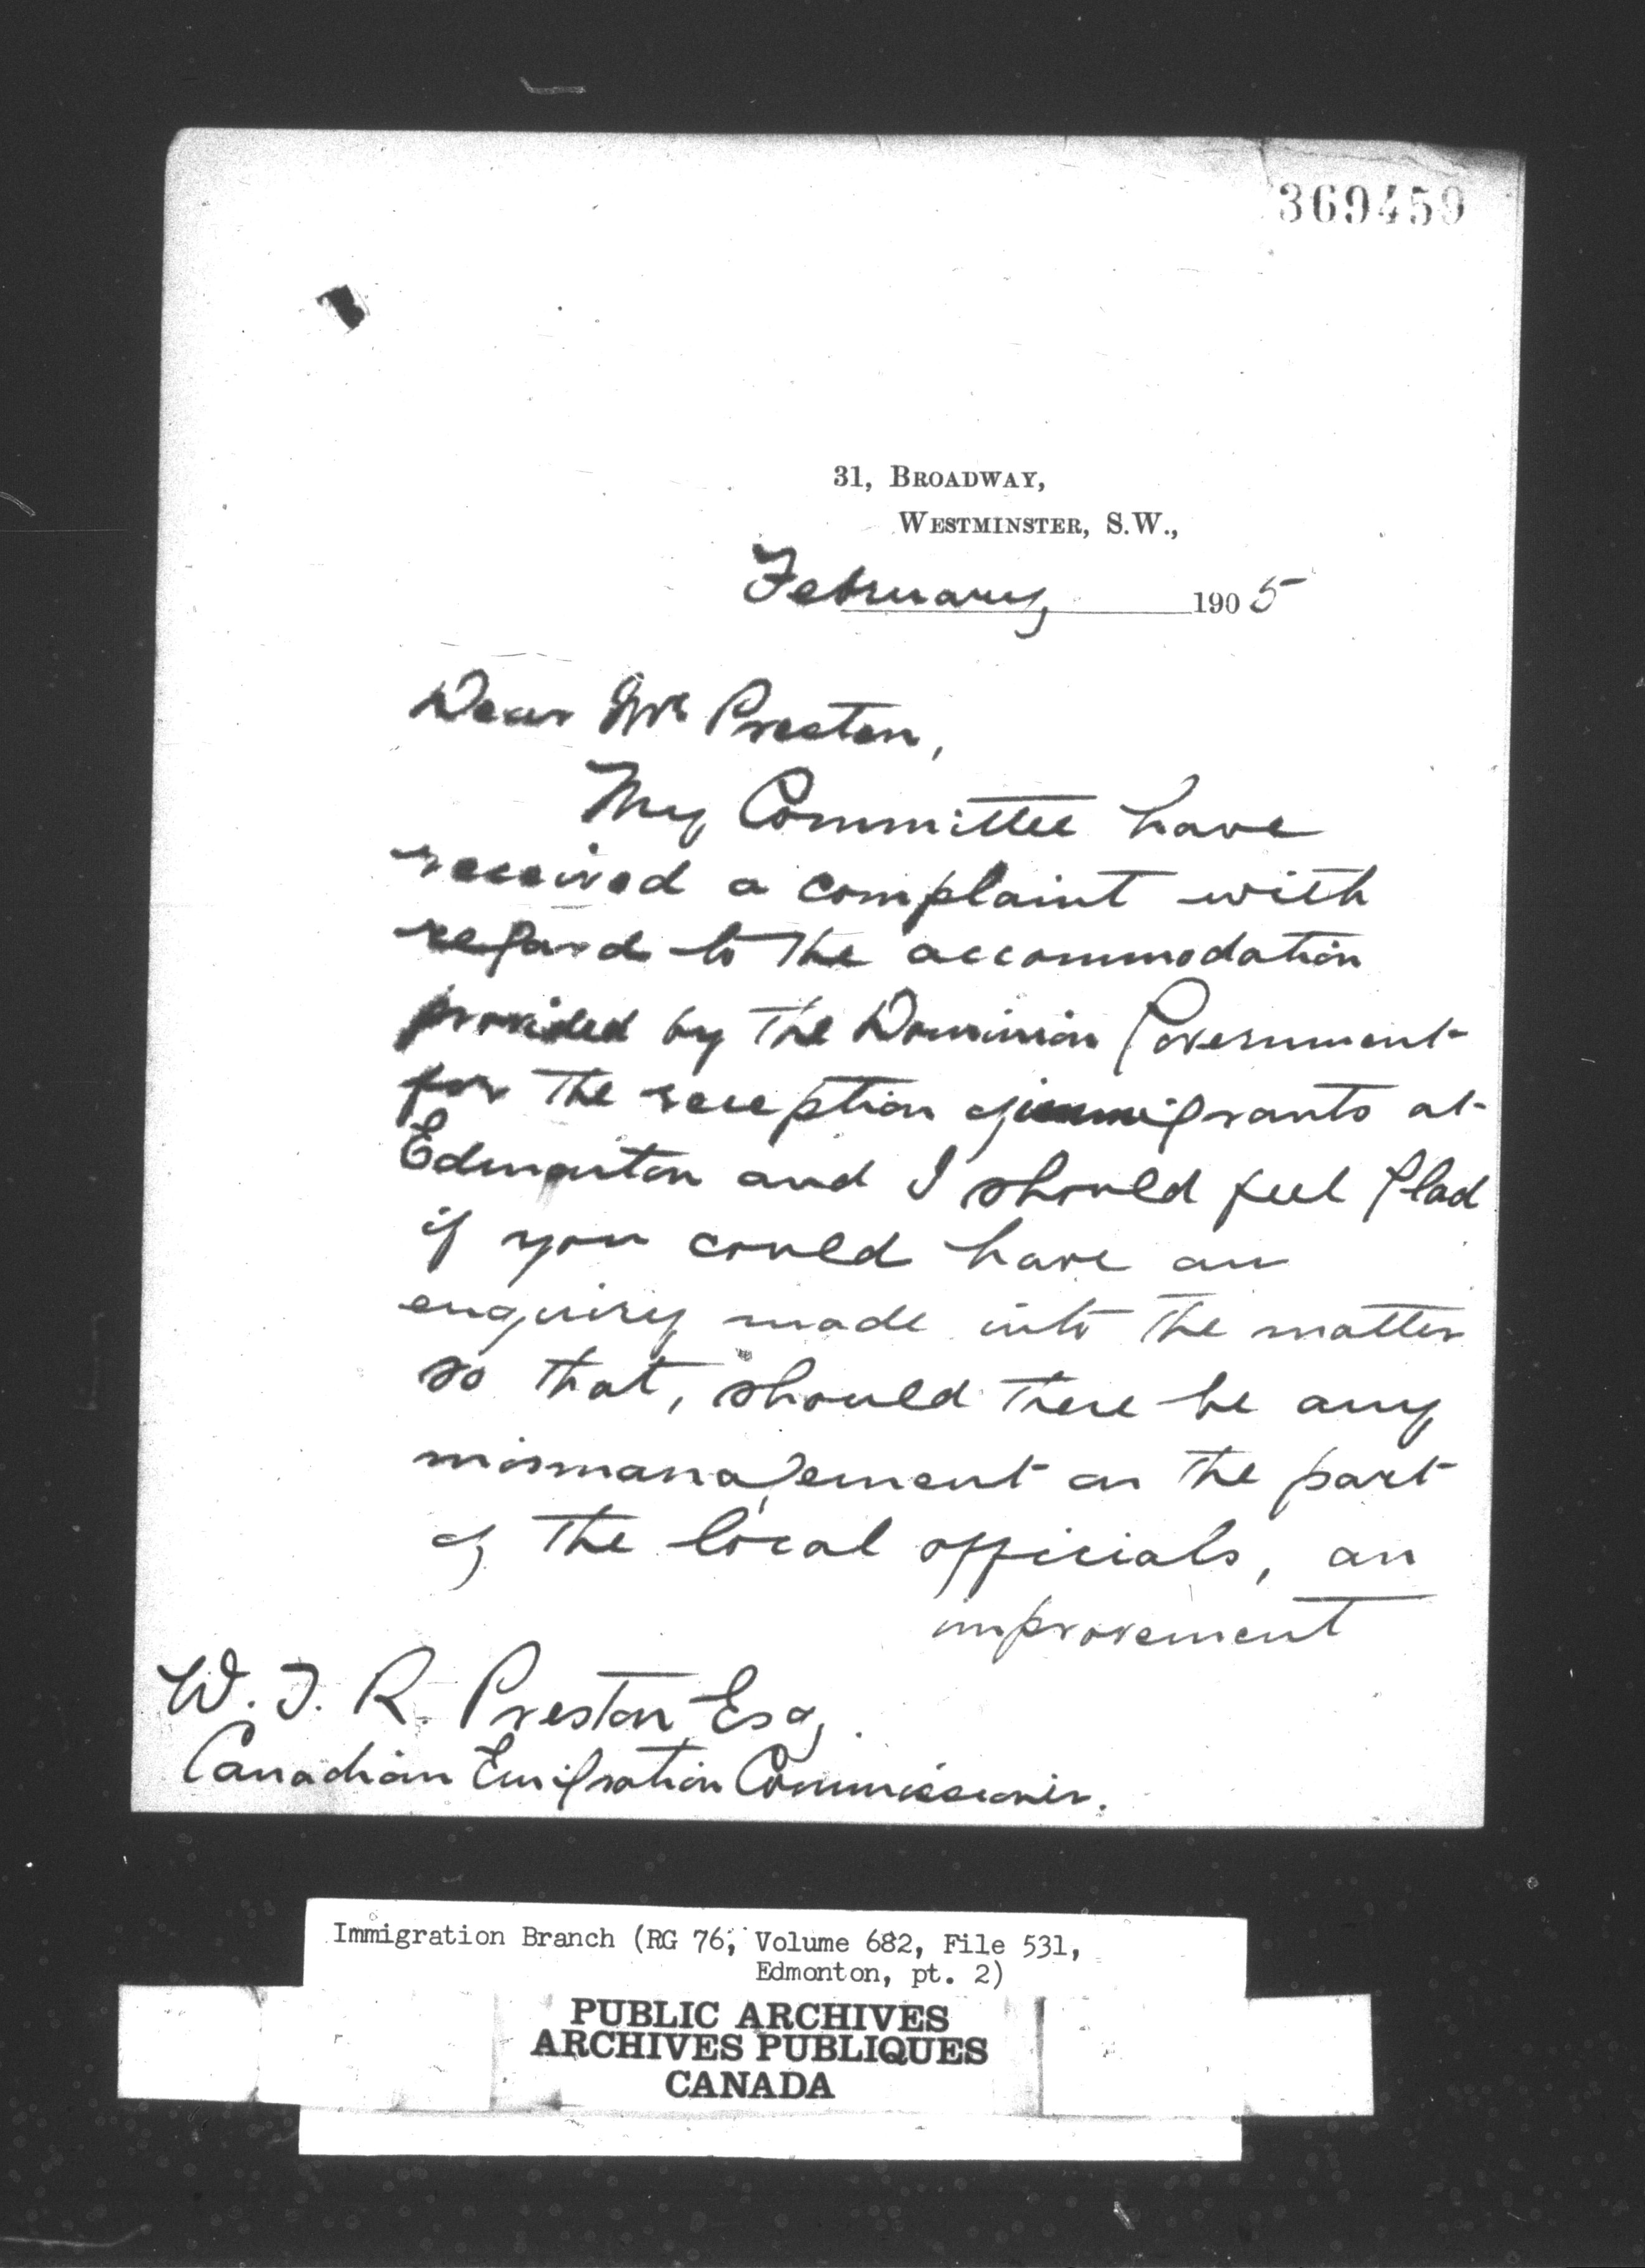 369459
31, BROADWAY,
WESTMINSTER, S.W.,
February 1905
Dear Mr Preston,
My Committee have
received a complaint with
regard to the accommodation
provided by the Dominion Government
for the reception of immigrants at
Edmonton and I should feel glad
if you could have an
enquiry made into the matter
so that, should there be any
mismanagement on the part
of the local officials, an
improvement
W. T. R. Preston Esq.
Canadian Emigration Commissioner.
Immigration Branch (RG 76, Volume 682, File 531,
Edmonton, pt. 2)
PUBLIC ARCHIVES
ARCHIVES PUBLIQUES
CANADA